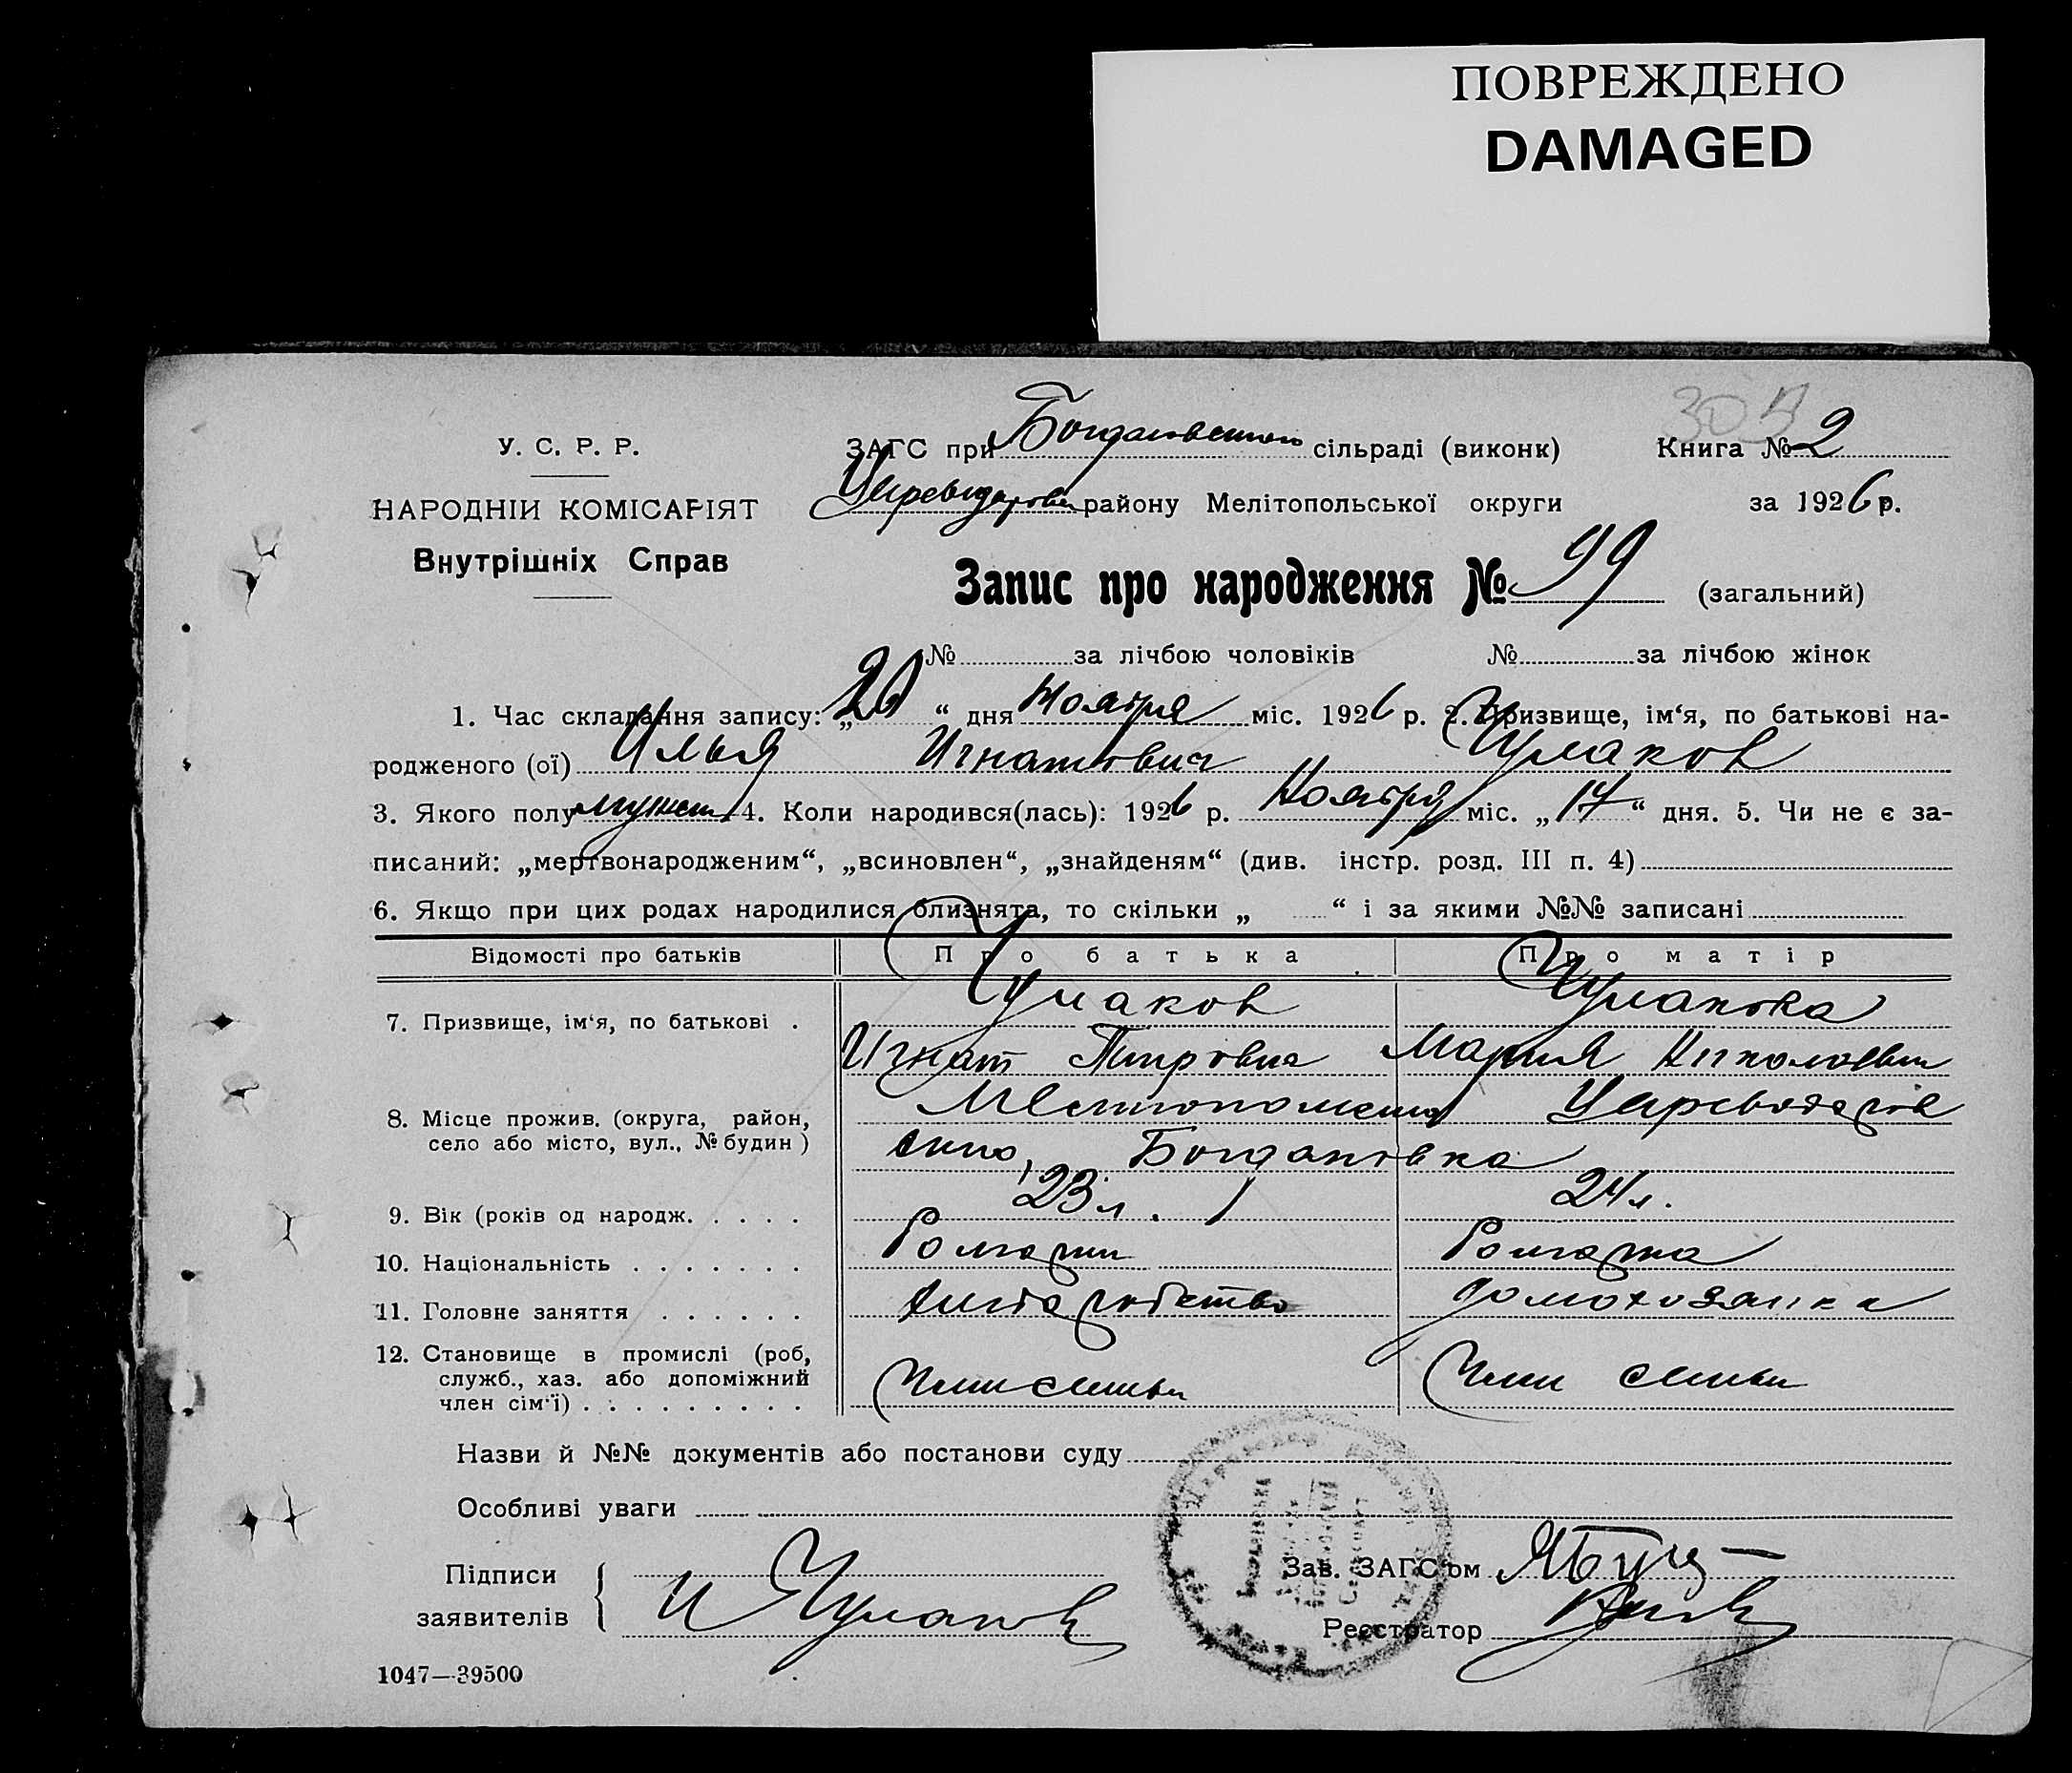 ПОВРЕЖДЕНО
DAMAGED
У. С. Р. Р.
НАРОДНІЙ КОМІСАРІЯТ
Внутрішніх Справ
ЗАГС при Богдановском сільраді (виконк)
района Мелітопольської округи
Книга № 2
за 1926 р.
Запис про народження № 99 (загальний)
№ за лічбою чоловіків № за лічбою жінок
1. Час складання запису: „20“ дня Ноября міс. 1926 р. 2. Призвище, ім‘я, по батькові на-
родженого (ої) Илья Игнатович Чумаков
3. Якого полу мужск 4. Коли народився(лась): 1926 р. Ноября міс. „17“ дня. 5. Чи не є за-
писаний: „мертвонародженим“, „всиновлен“, „знайденям“ (див. інстр. розд. III п. 4)
6. Якщо при цих родах народилися близнята, то скільки „ “ і за якими №№ записані
Відомості про батьків Про батька Про матір
7. Призвище, ім‘я, по батькові . Чумаков Чумакова
Игнат Мария
8. Місце прожив. (округа, район,
село або місто, вул., № будин) село, Богдановка
9. Вік (років од народж. . . . . 23 л. 24 л.
10. Національність . . . . . . .
11. Головне заняття . . . . . . домохозайка
12. Становище в промислі (роб,
служб., хаз. або допоміжний
член сім‘ї) . . . . . . . . . Член семьи Член семьи
Назви й №№ документів або постанови суду
Особливі уваги
Підписи
заявителів И Чумаков
Зав. ЗАГС‘ом
Реєстратор
1047—39500